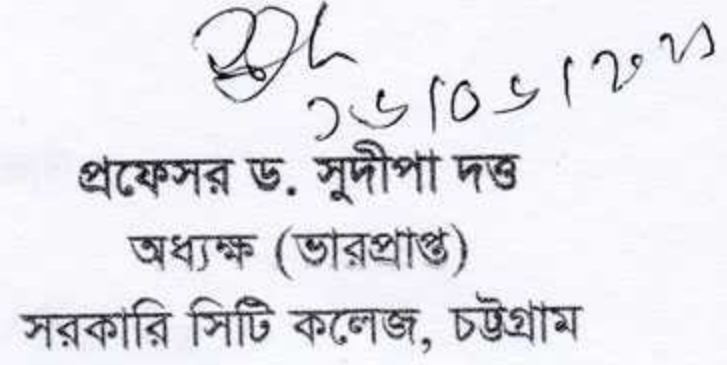 প্রফেসর ড. সুদীপা দত্ত
অধ্যক্ষ (ভারপ্রাপ্ত)
সরকারি সিটি কলেজ, চট্টগ্রাম